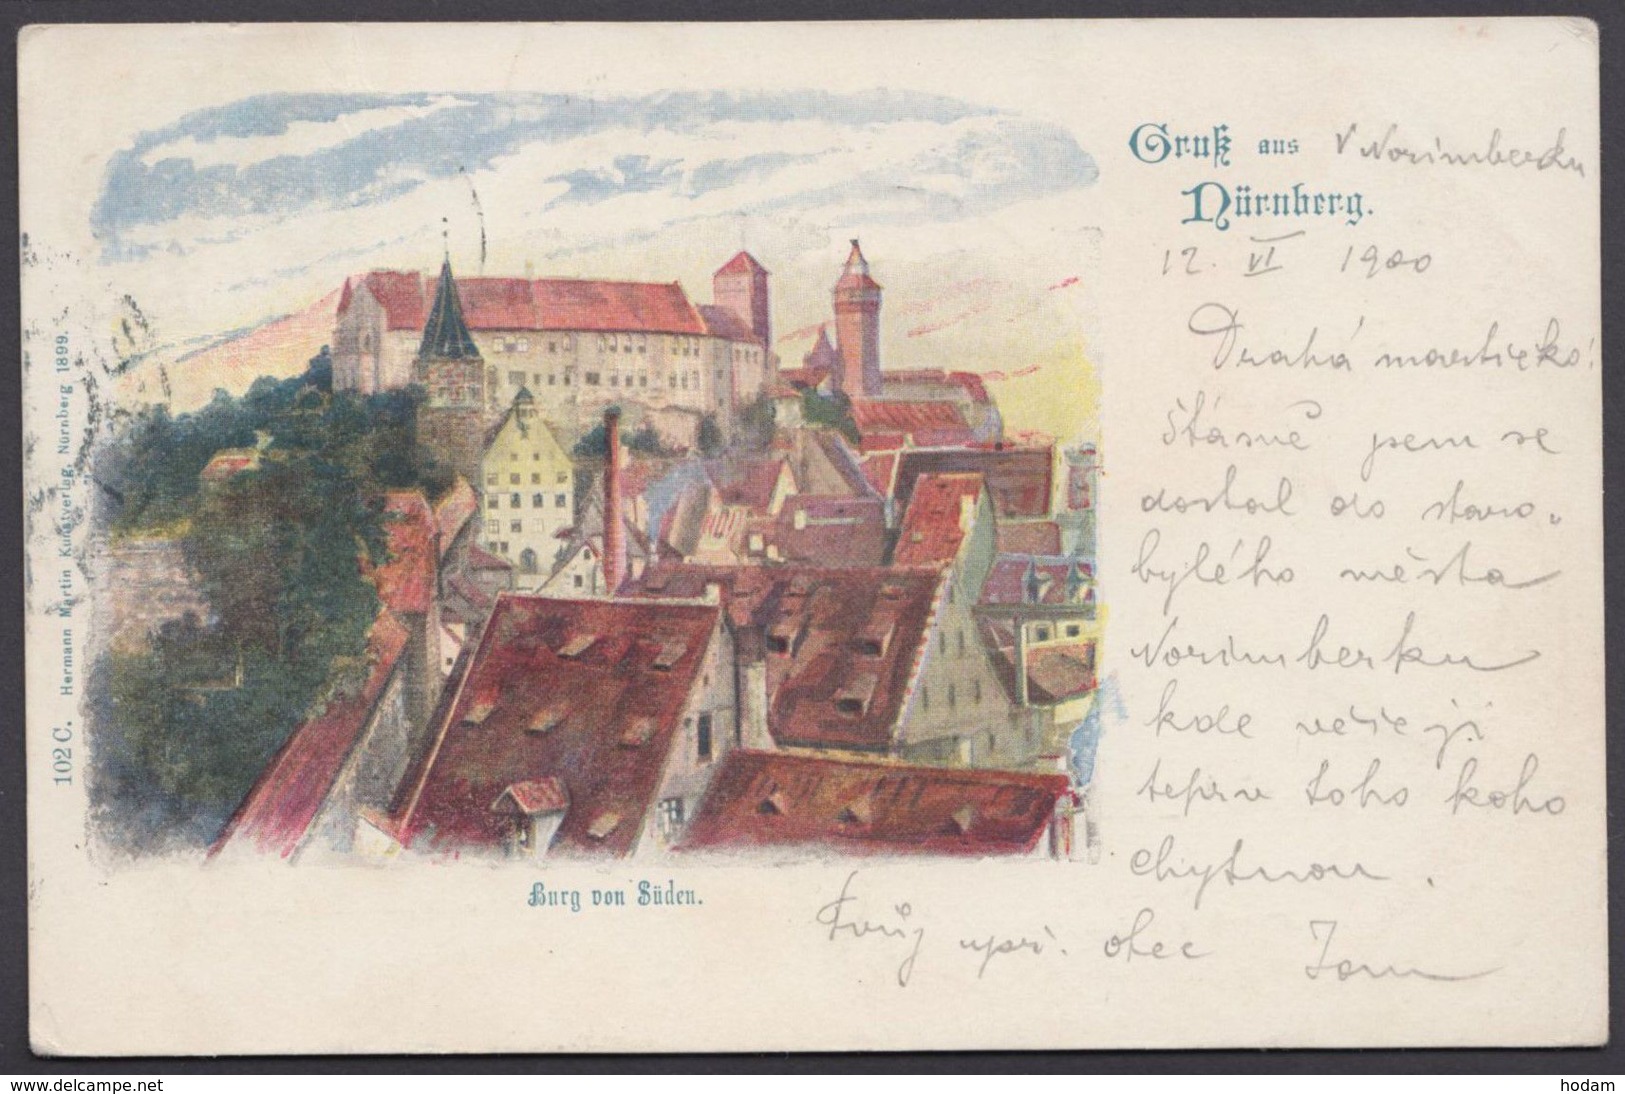 Gruß aus V Norimberku
Nürnberg.
12. VI 1900
Drahá martičko!
Šťásně jsem se
dostal do staro„
bylého města
Norimberku
kde věšejí
teprv toho koho
chytnou.
Tvůj upř. otec Jan
Burg von Süden.
102 C. Hermann Martin Kunstverlag, Nürnberg 1899.
www.delcampe.net
hodam